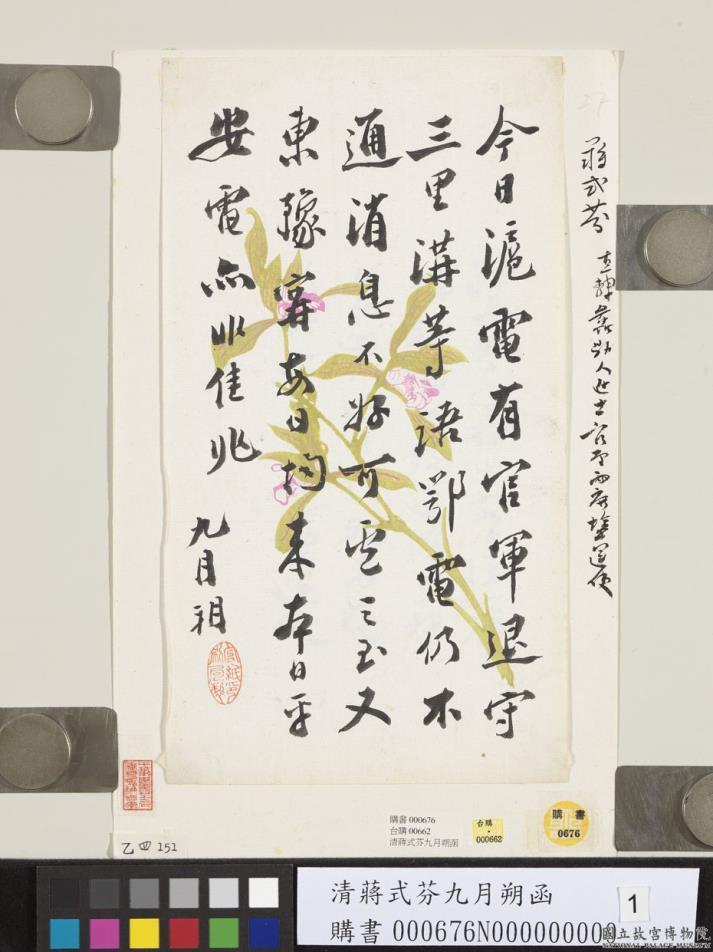 蔣式芬 直隸蠡縣人進士官至兩廣鹽運使
今日滬電有官軍退守
三里溝等語鄂電仍不
通消息不好可之至又
東豫寧每日均來本日平
安電亦非佳兆
九月朔
購書 000676
台購 00662
清蔣式芬九月朔函
台購
000662
購書
0676
乙四151
清蔣式芬九月朔函
1
購書000676N000000000
國立故宮博物院
NATIONAL PALACE MUSEUM